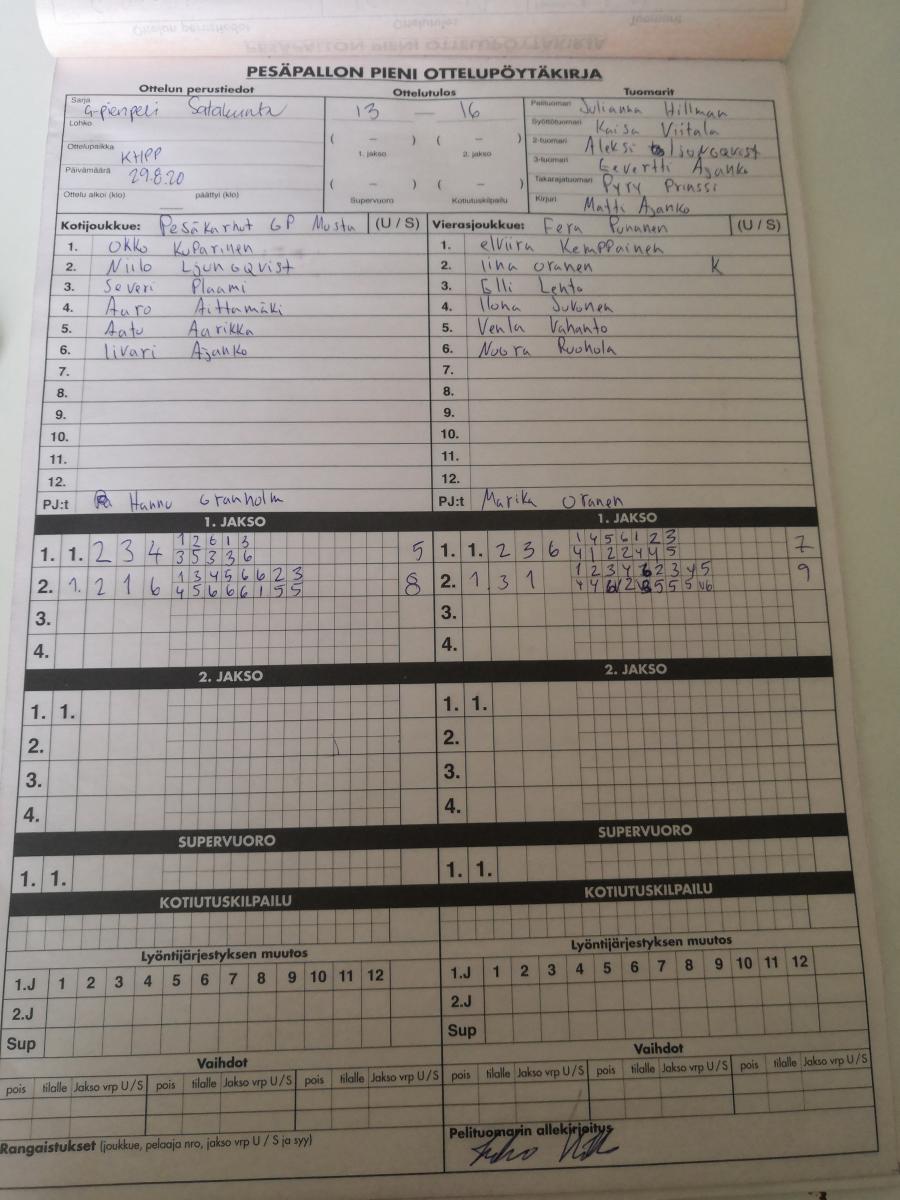 PESÄPALLON PIENI OTTELUPÖYTÄKIRJA
Ottelun perustiedot Ottelutulos Tuomarit
Sarja G-pienpeli Satakunta 13 — 16 Pelituomari Julianna Hillman
Lohko Syöttötuomari Kaisa Viitala
( – ) ( – ) 2-tuomari Aleksi Ljungqvist
Ottelupaikka KHPP 1. jakso 2. jakso 3-tuomari Eevertti Ajanko
Päivämäärä 29.8.20 ( – ) ( – ) Takarajatuomari Pyry Prinssi
Ottelu alkoi (klo) päättyi (klo) Supervuoro Kotiutuskilpailu Kirjuri Matti Ajanko
Kotijoukkue: Pesäkarhut GP Musta (U / S) Vierasjoukkue: Fera Punanen (U / S)
1. Okko Kuparinen 1. elviira Kemppainen
2. Niilo Ljungqvist 2. Iina Oranen K
3. Severi Plaami 3. Elli Lehto
4. Auro Aittamäki 4. Ilona Jukonen
5. Aatu Aarikka 5. Venla Vahanto
6. Iivari Ajanko 6. Noora Ruohola
7. 7.
8. 8.
9. 9.
10. 10.
11. 11.
12. 12.
PJ:t Hannu Granholm PJ:t Marika Oranen
1. JAKSO 1. JAKSO
1. 1. 2 3 4 1 2 6 1 3 5 1. 1. 2 3 6 1 4 5 6 1 2 3 7
3 5 3 3 6 4 1 2 2 4 4 5
2. 1. 2 1 6 1 3 4 5 6 6 2 3 8 2. 1. 3 1 1 2 3 4 6 2 3 4 5 9
4 5 6 6 6 1 5 5 4 4 6 1 2 5 5 5 6
3. 3.
4. 4.
2. JAKSO 2. JAKSO
1. 1. 1. 1.
2. 2.
3. 3.
4. 4.
SUPERVUORO SUPERVUORO
1. 1. 1. 1.
KOTIUTUSKILPAILU KOTIUTUSKILPAILU
Lyöntijärjestyksen muutos Lyöntijärjestyksen muutos
1.J 1 2 3 4 5 6 7 8 9 10 11 12 1.J 1 2 3 4 5 6 7 8 9 10 11 12
2.J 2.J
Sup Sup
Vaihdot Vaihdot
pois tilalle Jakso vrp U / S pois tilalle Jakso vrp U / S pois tilalle Jakso vrp U / S pois tilalle Jakso vrp U / S pois tilalle Jakso vrp U / S pois tilalle Jakso vrp U / S
Rangaistukset (joukkue, pelaaja nro, jakso vrp U / S ja syy) Pelituomarin allekirjoitus